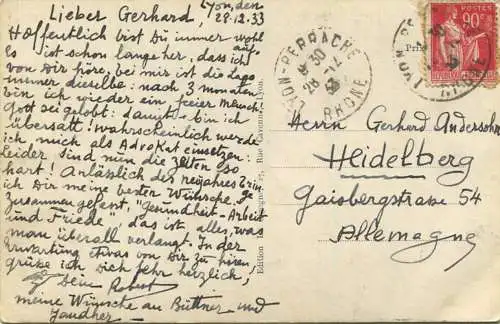 Lyon, den
28.12.33
Lieber Gerhard,
Hoffentlich bist Du immer wohl
auf.
Es ist schon lange her, dass ich
von Dir höre, bei mir ist die Lage
immer dieselbe: nach 3 Monaten
bin ich wieder ein freier Mensch!
Gott sei gelobt: damit bin ich
übersatt! Wahrscheinlich werde
ich mich als Advokat einsetzen:
Leider sind nun die Zeiten so
hart! Anlässlich des Neujahres bringe
ich Dir meine besten Wünsche.
Zusammengefasst, "Gesundheit-Arbeit
und Friede" das ist alles, was
man überall verlangt. In der
Erwartung etwas von Dir zu hören,
grüße ich Dich sehr herzlich,
Dein Robert
meine Wünsche an Büttner und
LYON-PERRACHE
9 30
28 -12
33
RHONE
POSTES
90c
REPUBLIQUE FRANÇAISE
Herrn Gerhard Andersohn
Heidelberg
Gaisbergstrasse 54
Allemagne